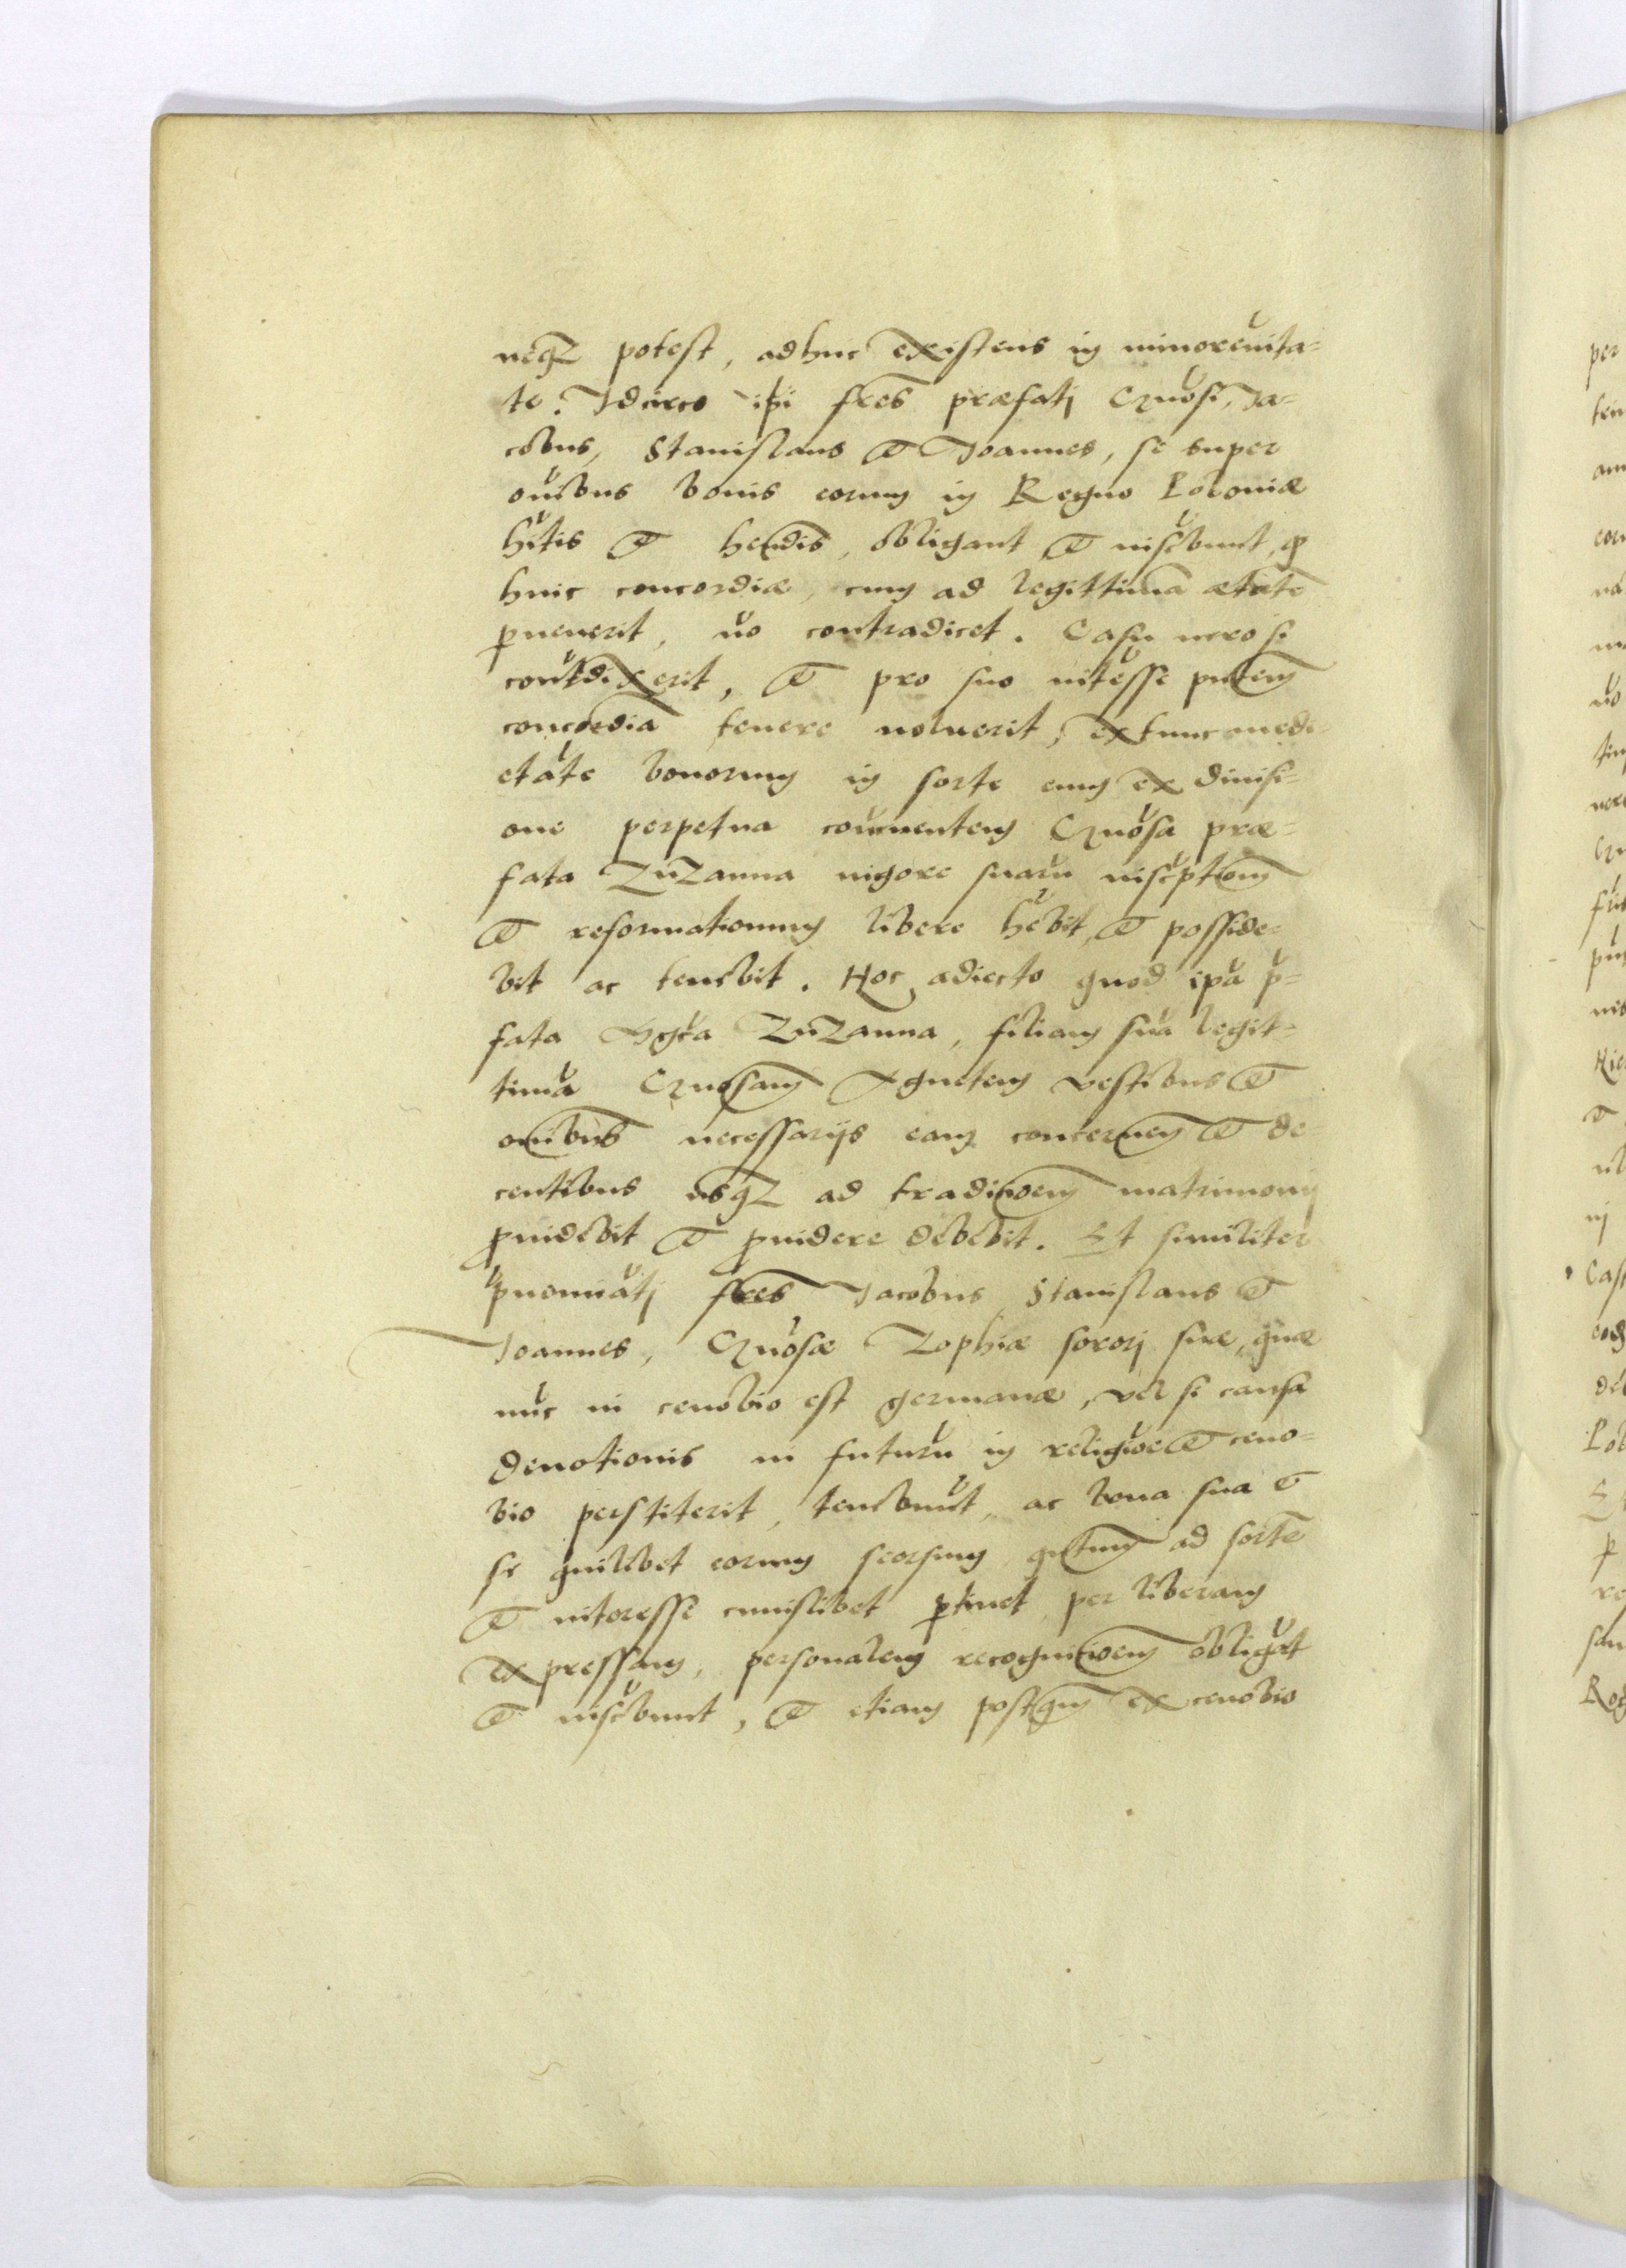 neq₃ potest, adhuc existens in minorenita-
te. Idcirco ipi fres præfatj Gnosi, Ja-
cobus, Stanislaus et Joannes, se super
oibus bonis eorum in Regno Poloniæ
hitis et hendis, obligant et inscbunt, q
huic concordiæ, cum ad legittima ætate
pvenerit, no contradicet. Casu vero si
contdixerit, et pro suo intesse pntem
concordia tenere noluerit, extunc medi-
etate bonorum in sorte eum ex divisi-
one perpetua convenientem Gnosa præ-
fata Zuzanna vigore suaru inscptionum
et reformationum libere hebit, et posside-
bit ac tenebit. Hoc adiecto quod ipa p-
fata Zuzanna, filiam sua legit-
tima Gnosam Agnetem vestibus et
omibus necessarijs eam concernen et de
centibus usq₃ ad tradicioem matrimony
pvidebit et pvidere debebit. Et similiter
pnominatj fres Jacobus, Stanislaus et
Joannes, Gnosæ Zophiæ sororj suæ, quæ
nuc in cenobio est germanæ, vel si causa
devotionis in futuru in religioe et ceno-
bio perstiterit, tenebunt, ac bona sua et
se quilibet eorum seorsum qntum ad sorte
et interesse cuiuslibet ptinet per liberam
expressam, personalem recognicioem obligat
et inscbunt, et etiam postqm ex cenobio